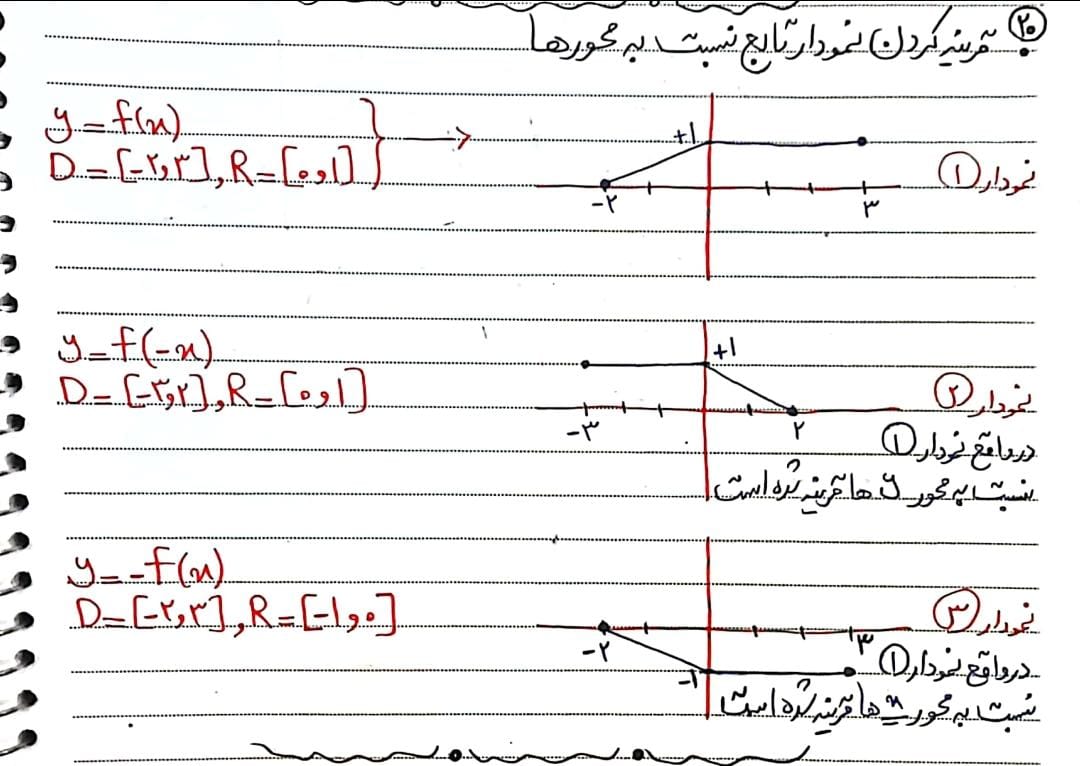 ۲۰ قرینه کردن نمودار تابع نسبت به محورها
نمودار ۱
y = f(x)
D = [-۲,۳], R = [۰,۱]
+۱
-۲ ۳
نمودار ۲
در واقع نمودار ۱
نسبت به محور y ها قرینه شده است
y = f(-x)
D = [-۳,۲], R = [۰,۱]
+۱
-۳ ۲
نمودار ۳
در واقع نمودار ۱
نسبت به محور x ها قرینه شده است
y = -f(x)
D = [-۲,۳], R = [-۱,۰]
-۲ ۳
-۱